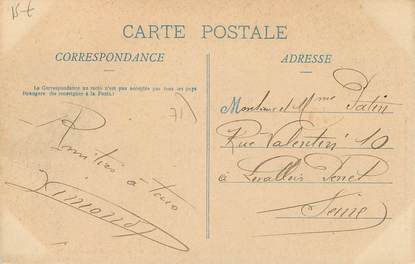 15-€
CARTE POSTALE
CORRESPONDANCE
La Correspondance au recto n'est pas acceptée par tous les pays
étrangers (Se renseigner à la Poste.)
71
Amitiés à tous
ADRESSE
Monsieur et Mme Patin
Rue Valentin 10
à Levallois Perret
Seine